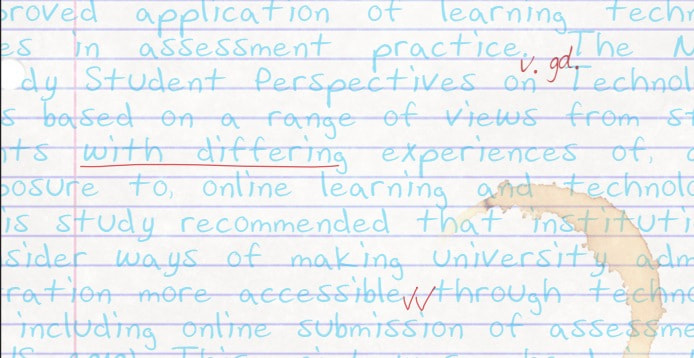 proved application of learning techn
es in assessment practice. The N
v. gd.
dy Student Perspectives on Technol
s based on a range of views from st
nts with differing experiences of,
posure to, online learning and technolo
is study recommended that instituti
sider ways of making university adm
ration more accessible through techno
including online submission of assessme